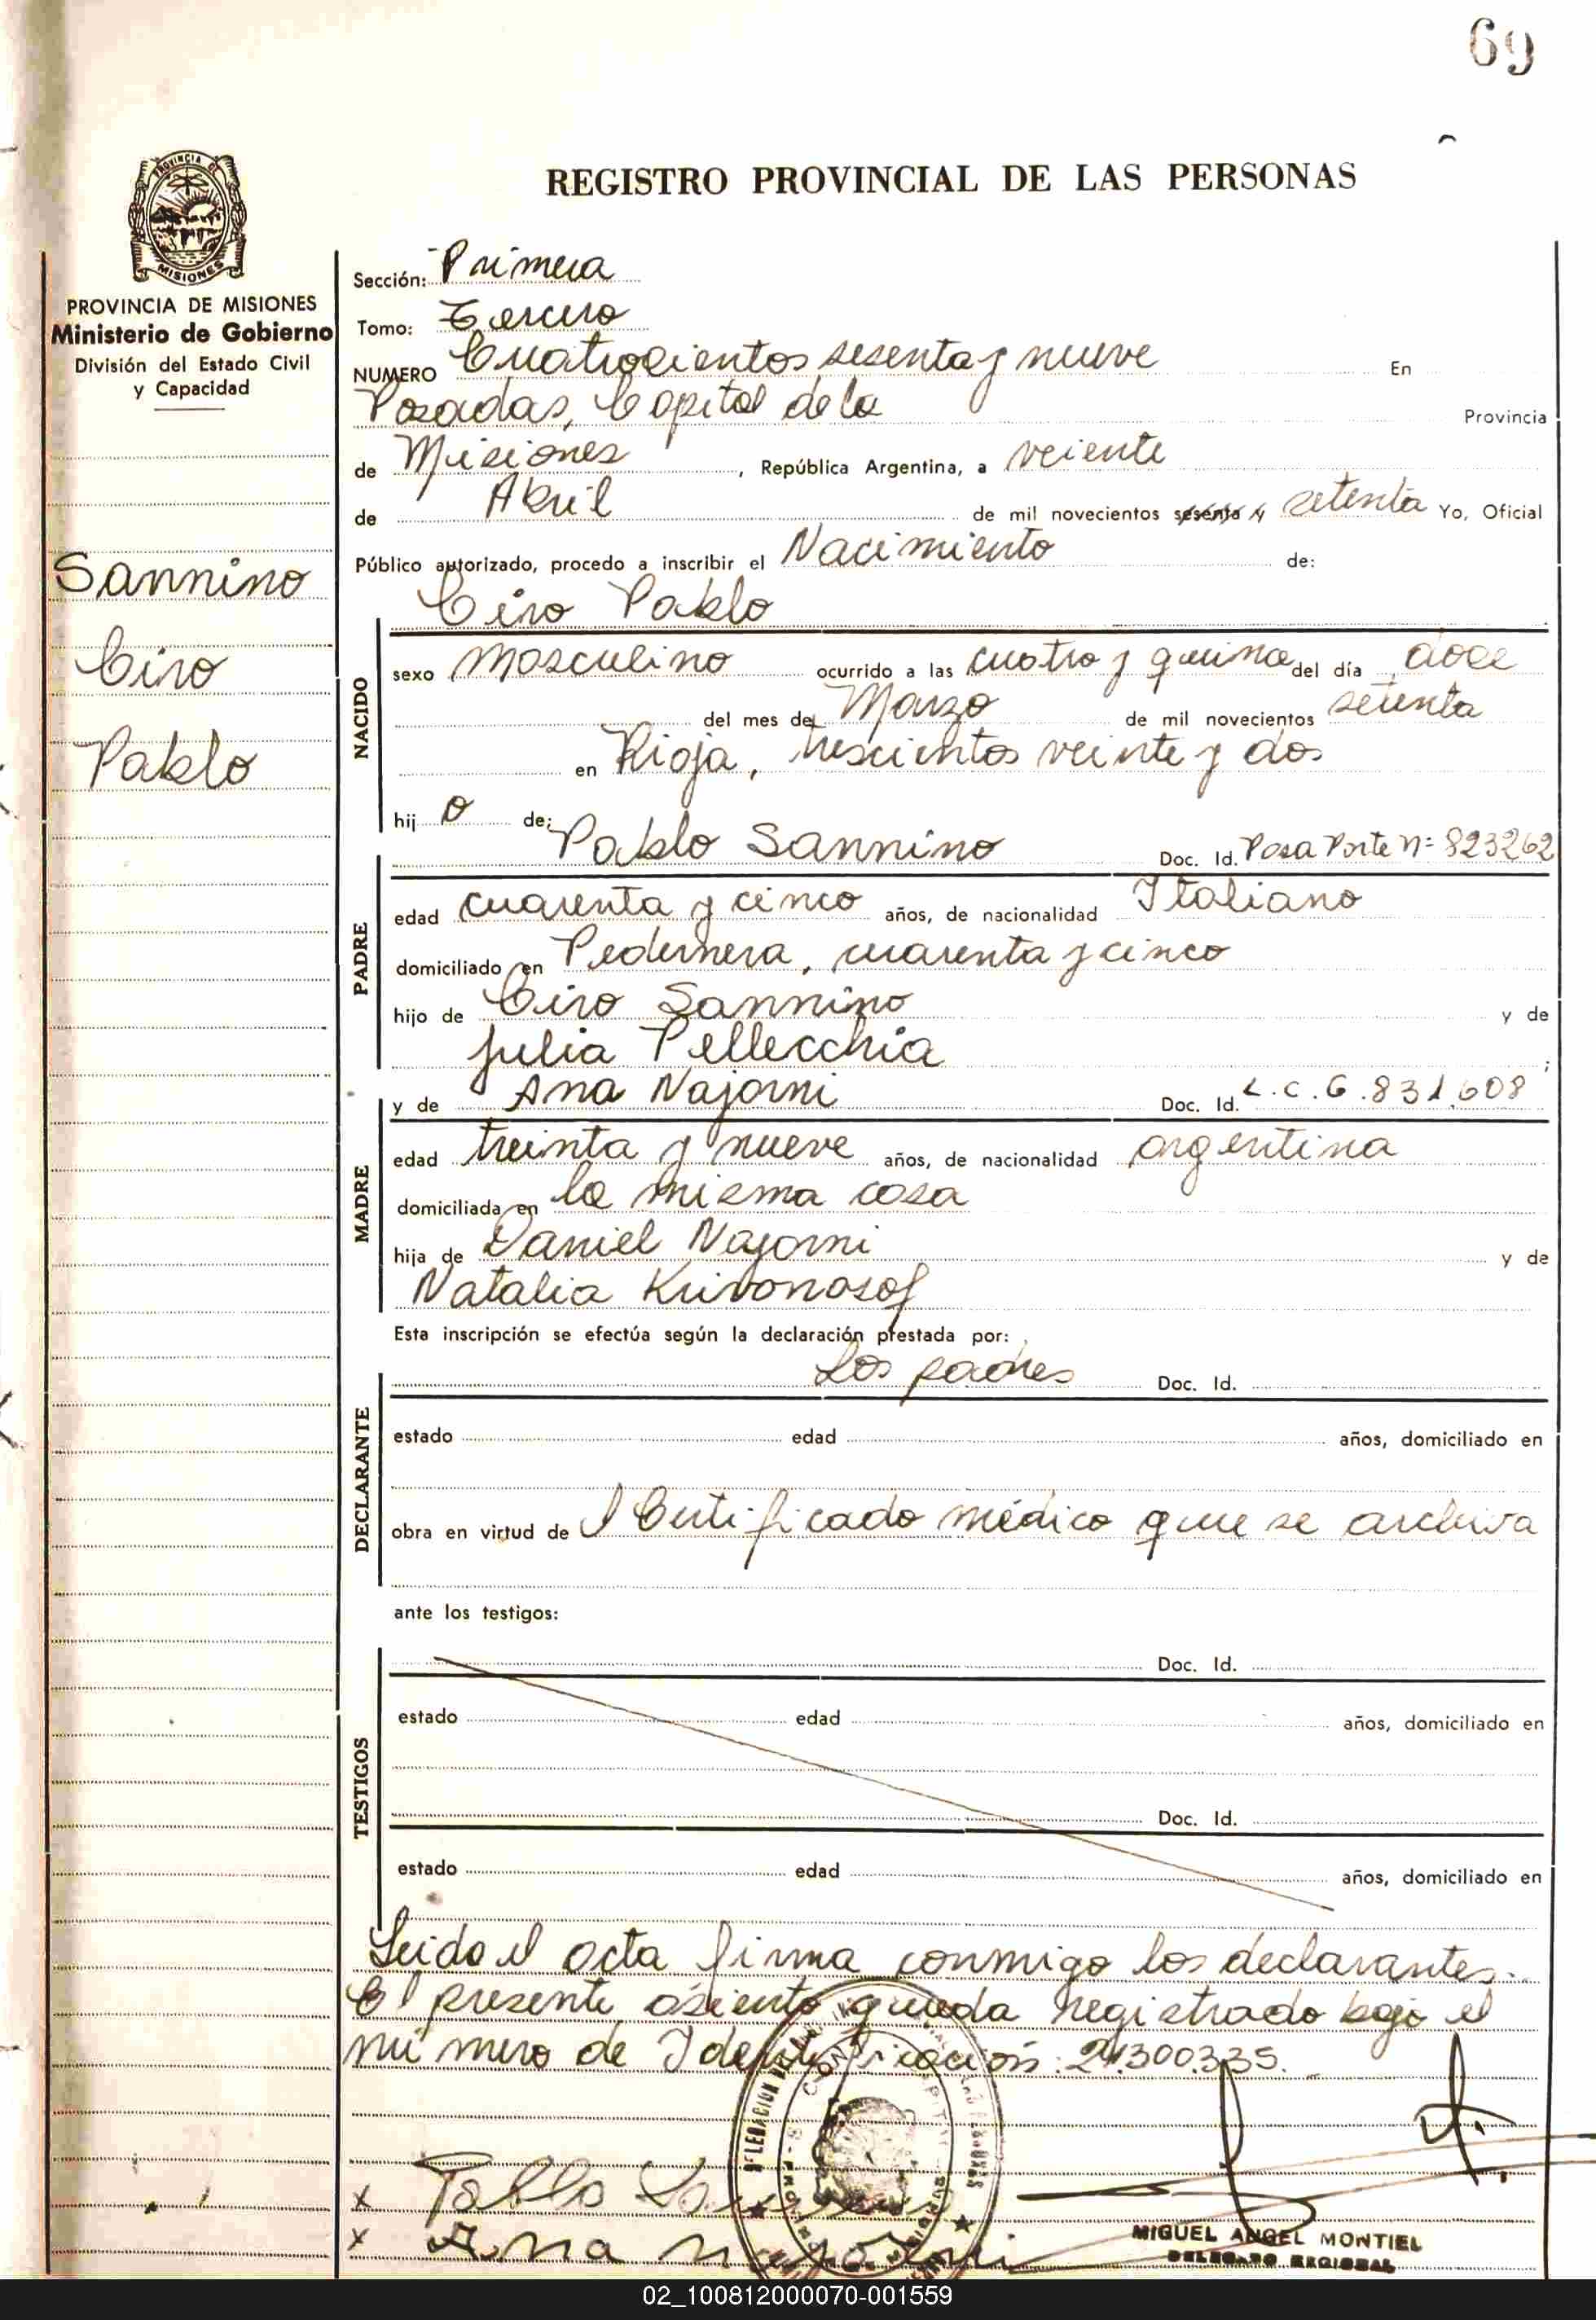 69
REGISTRO PROVINCIAL DE LAS PERSONAS
PROVINCIA DE
MISIONES
PROVINCIA DE MISIONES
Ministerio de Gobierno
División del Estado Civil
y Capacidad
Sannino
Ciro
Pablo
Sección: Primera
Tomo: Tercero
NUMERO Cuatrocientos sesenta y nueve En
Posadas, Capital de la Provincia
de Misiones, República Argentina, a veiente
de Abril de mil novecientos sesenta y setenta Yo, Oficial
Público autorizado, procedo a inscribir el Nacimiento de:
Ciro Pablo
NACIDO
sexo Masculino ocurrido a las cuatro y quince del día doce
del mes de Marzo de mil novecientos setenta
en Rioja, trescientos veinte y dos
hij o de:
Pablo Sannino Doc. Id. Pasa Porte Nº 823262
PADRE
edad cuarenta y cinco años, de nacionalidad Italiano
domiciliado en Pedernera, cuarenta y cinco
hijo de Ciro Sannino y de
Julia Pellecchia ;
y de Ana Najorni Doc. Id. L.C.6.831.608
MADRE
edad treinta y nueve años, de nacionalidad argentina
domiciliada en la misma casa
hija de Daniel Najorni y de
Natalia Krivonosof
Esta inscripción se efectúa según la declaración prestada por:
Los padres Doc. Id.
DECLARANTE
estado edad años, domiciliado en
obra en virtud de l Certificado médico que se archiva
ante los testigos:
Doc. Id.
TESTIGOS
estado edad años, domiciliado en
Doc. Id.
estado edad años, domiciliado en
Leido el acta firma conmigo los declarantes.
El presente asiento queda registrado bajo el
número de Identificación: 21.300.335.
x Pablo Sannino
x Ana Najorni
MIGUEL ANGEL MONTIEL
DELEGADO REGIONAL
02_100812000070-001559